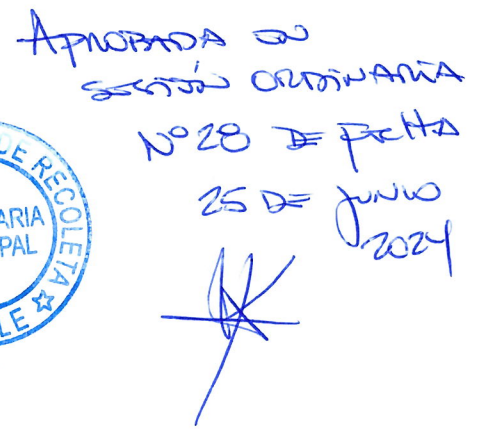 APROBADA EN
SESIÓN ORDINARIA
N° 28 DE FECHA
25 DE JUNIO
2024
DE RECOLETA
ARIA
PAL
LE